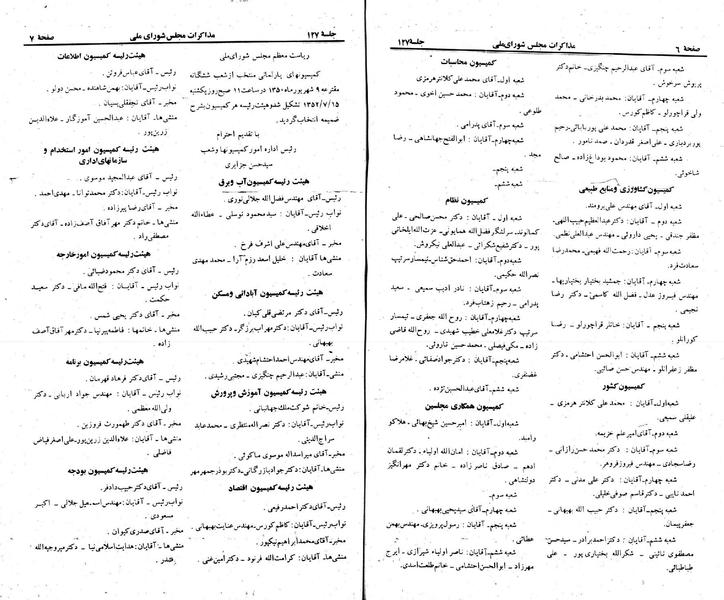 صفحهٔ ۶
مذاکرات مجلس شورای ملی
جلسهٔ ۱۲۷
شعبه سوم- آقای عبدالرحیم چنگیزی- خانم دکتر
پریوش سرخوش.
شعبه چهارم- آقایان: محمد بدرخانی- محمد
ولی قراچورلو- کاظم کورس.
شعبه پنجم- آقایان: محمدعلی پور بابائی- رحیم
پوربردباری- علی‌اصغر قدردان- صمد نامور.
شعبه ششم- آقایان: محمود بوداغ‌زاده- صالح
شاخوئی.
کمیسیون کشاورزی و منابع طبیعی
شعبه اول- آقای مهندس علی برومند.
شعبه دوم- آقایان: دکتر عبدالعظیم حبیب‌اللهی-
مظفر جندقی- یحیی داروئی- مهندس عبدالعلی نظمی.
شعبه سوم- آقایان: رحمت‌الله فهیمی- محمدرضا
سعادت فرد.
شعبه چهارم- آقایان: جمشید بختیار بختیاریها-
مهندس فیروز عدل- فضل‌الله کاسمی- دکتر رضا
نجیمی.
شعبه پنجم- آقایان: خانلر قراچورلو- رضا
کورانلو.
شعبه ششم- آقایان: ابوالحسن احتشامی- دکتر
مظفر زعفرانلو- مهندس حسن صائبی.
کمیسیون کشور
شعبه اول- آقایان: محمدعلی کلانتر هرمزی-
علینقی سمیعی.
شعبه دوم- آقای امیرعلم خزیمه.
شعبه سوم- آقایان: دکتر محمدحسن رازانی-
رضا سجادی- مهندس فیروز فروهر.
شعبه چهارم- آقایان: دکتر علی مدنی- دکتر
احمد نایبی- دکتر قاسم صوفی‌خلیلی.
شعبه پنجم- آقایان: دکتر حبیب‌الله بهبهانی-
جعفر پیمان.
شعبه ششم- آقایان: دکتر احمد برادر- سیدحسن
مصطفوی نائینی- شکرالله بختیاری پور- علی
طباطبائی.
کمیسیون محاسبات
شعبه اول- آقای محمدعلی کلانتر هرمزی
شعبه دوم- آقایان: محمدحسن اخوی- محمود
طلوعی.
شعبه سوم- آقای پدرامی.
شعبه چهارم- آقایان: ابوالفتح جهانشاهی- رضا
مجد.
شعبه پنجم-
شعبه ششم-
کمیسیون نظام
شعبه اول- آقایان: دکتر محسن صالحی- علی
کمالوند- سرلشگر فضل‌الله همایونی- عزت‌الله ایلخانی
پور- دکتر شفیع شکرائی- عبدالعلی نیکروش.
شعبه دوم- آقایان: احمد حق‌شناس- تیمسار سرتیپ
نصرالله حکیمی.
شعبه سوم- آقایان: نادر ادیب سمیعی- سعید
پدرامی- رحیم زهتاب فرد.
شعبه چهارم- آقایان: روح‌الله جعفری- تیمسار
سرتیپ دکتر غلامعلی خطیب شهیدی- روح‌الله قاضی
زاده- مکی فیصلی- محمدحسین ناروئی.
شعبه پنجم- آقایان: دکتر جواد صفائی- غلامرضا
غضنفری.
شعبه ششم- آقای عبدالحسین نژده.
کمیسیون همکاری مجلسین
شعبه اول- آقایان: امیرحسین شیخ‌بهائی- هلاکو
رامبد.
شعبه دوم- آقایان: امان‌الله اولیاء- دکتر لقمان
ادهم- صادق ناصرزاده- خانم دکتر مهرانگیز
دولتشاهی.
شعبه سوم-
شعبه چهارم- آقای سید یحیی بهبهانی.
شعبه پنجم- آقایان: رسول پرویزی- مهندس بهمن
عطائی.
شعبه ششم- آقایان: ناصر اولیاء شیرازی- ایرج
مهرزاد- ابوالحسن احتشامی- خانم طلعت اسدی.
جلسهٔ ۱۲۷
مذاکرات مجلس شورای ملی
صفحهٔ ۷
ریاست معظم مجلس شورای ملی
کمیسیونهای پارلمانی منتخب از شعب ششگانه
مقترعه ۹ شهریورماه ۱۳۵۰ در ساعت ۱۱ صبح روز یکشنبه
۱۳۵۲/۷/۱۵ تشکیل شد و هیئت رئیسه هر کمیسیون بشرح
ضمیمه انتخاب گردید.
با تقدیم احترام
رئیس اداره امور کمیسیونها و شعب
سیدحسن جزایری
هیئت رئیسه کمیسیون آب و برق
رئیس- آقای مهندس فضل‌الله جلالی نوری.
نواب رئیس- آقایان: سید محمود توسلی- عطاءالله
اخلاقی.
مخبر- آقای مهندس علی اشرف فرخ.
منشی‌ها- آقایان: خلیل اسعد رزم‌آرا- محمد مهدی
سعادت.
هیئت رئیسه کمیسیون آبادانی و مسکن
رئیس- آقای دکتر مرتضی قلی کیان.
نواب رئیس- آقایان: دکتر مهراب برزگر- دکتر حبیب‌الله
بهبهانی.
مخبر- آقای مهندس احمد احتشام شهیدی.
منشی- آقایان: عبدالرحیم چنگیزی- مجتبی رشیدی.
هیئت رئیسه کمیسیون آموزش و پرورش
رئیس- خانم شوکت‌ملک جهانبانی.
نواب رئیس- آقایان: دکتر نصرالله منتظری- محمد عابد
سراج‌الدینی.
مخبر- آقای میر اسداله موسوی ماکوئی.
منشی‌ها- آقایان: دکتر جواد بازرگانی- دکتر بوذرجمهر مهر
هیئت رئیسه کمیسیون اقتصاد
رئیس- آقای دکتر احمد رفیعی.
نواب رئیس- آقایان: کاظم کورس- مهندس عنایت بهبهانی.
مخبر- آقای محمد ابراهیم نیکپور.
منشی‌ها- آقایان: کرامت‌الله فرنود- دکتر امین غنی.
هیئت رئیسه کمیسیون اطلاعات
رئیس- آقای عباس فروتن.
نواب رئیس- آقایان: بهمن شاهنده- محسن دولو.
مخبر- آقای نجفقلی سیبان.
منشی‌ها- آقایان: عبدالحسین آموزگار- علاءالدین
زرین‌پور.
هیئت رئیسه کمیسیون امور استخدام و
سازمانهای اداری
رئیس- آقای عبدالمجید موسوی.
نواب رئیس- آقایان: دکتر محمد توانا- مهدی احمد.
مخبر- آقای رضا پیرزاده.
منشی‌ها- خانم دکتر مهر آفاق آصف‌زاده- آقای دکتر
مصطفی راد.
هیئت رئیسه کمیسیون امور خارجه
رئیس- آقای دکتر محمود ضیائی.
نواب رئیس- آقایان: فتح‌الله مافی- دکتر سعید
حکمت.
مخبر- آقای دکتر یحیی شمس.
منشی‌ها- خانمها: فاطمه پیرنیا- دکتر مهر آفاق آصف
زاده.
هیئت رئیسه کمیسیون برنامه
رئیس- آقای دکتر فرهاد قهرمان.
نواب رئیس- آقایان: مهندس جواد اربابی- دکتر
ولی‌الله معظمی.
مخبر- آقای دکتر طهمورث فروزین.
منشی‌ها- آقایان: علاءالدین زرین‌پور- علی‌اصغر فیاض
فاضلی.
هیئت رئیسه کمیسیون بودجه
رئیس- آقای دکتر حبیب دادفر.
نواب رئیس- آقایان: مهندس اسمعیل جلالی- اکبر
مسعودی.
مخبر- آقای صدری کیوان.
منشی‌ها- آقایان: هدایت اسلامی‌نیا- دکتر میروجیه‌الله
فندر.